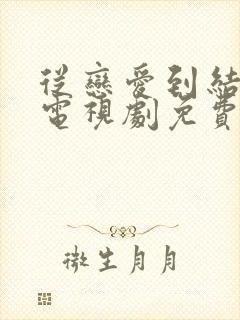 從戀愛到結
電視劇免費
微生月月